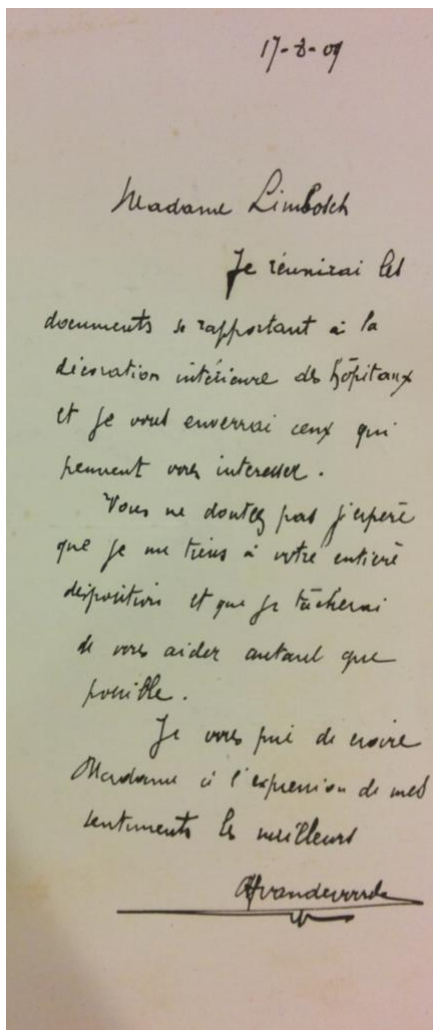 17-8-09
Madame Limbosch
Je réunirai les
documents se rapportant à la
décoration intérieure des hôpitaux
et je vous enverrai ceux qui
peuvent vous interesser.
Vous ne doutez pas j'espère
que je me tiens à votre entière
disposition et que je tâcherai
de vous aider autant que
possible.
Je vous prie de croire
Madame à l'expression de mes
sentiments les meilleurs